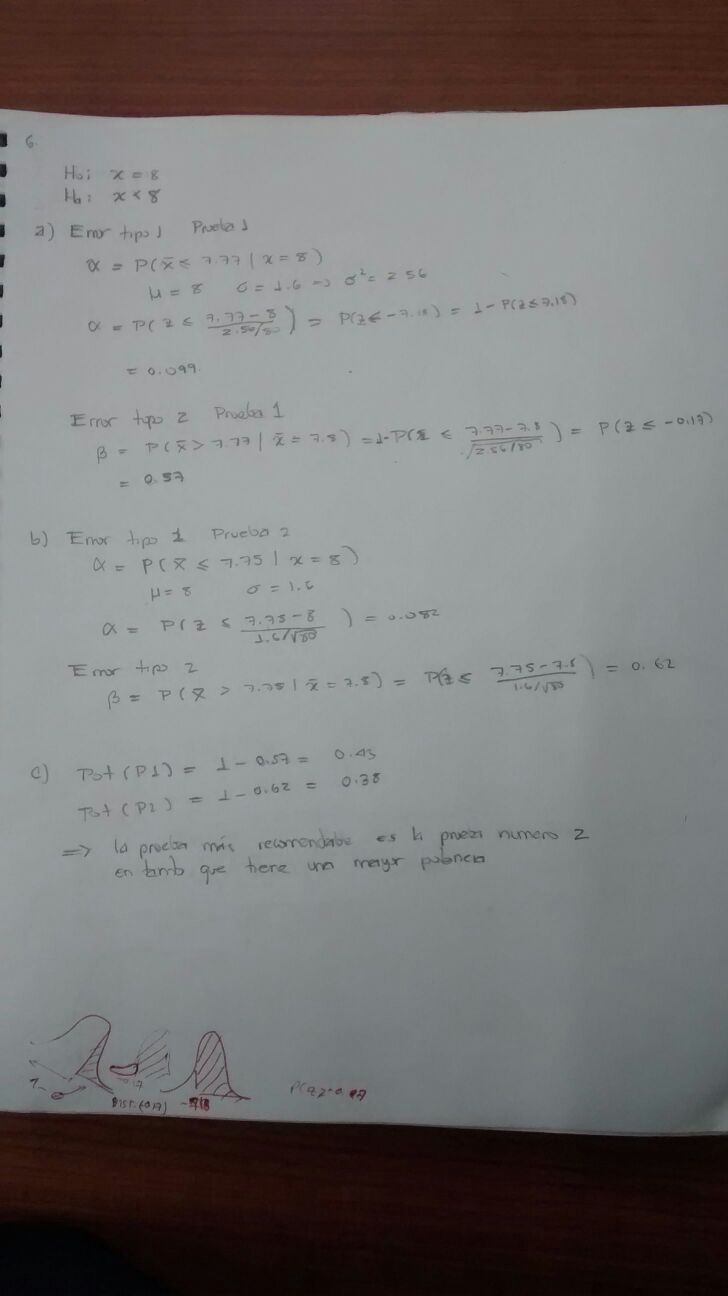 6.
H₀: x = 8
Ha: x < 8
a) Error tipo 1 Prueba 1
α = P(x̄ ≤ 7.77 | x = 8)
μ = 8 σ = 1.6 => σ² = 2.56
α = P(z ≤ (7.77 - 8)/(2.56/80)) = P(z ≤ -7.18) = 1 - P(z ≤ 7.18)
= 0.099
Error tipo 2 Prueba 1
β = P(x̄ > 7.77 | x̄ = 7.8) = 1 - P(z ≤ (7.77 - 7.8)/√(2.56/80)) = P(z ≤ -0.17)
= 0.57
b) Error tipo 1 Prueba 2
α = P(x̄ ≤ 7.75 | x = 8)
μ = 8 σ = 1.6
α = P(z ≤ (7.75 - 8)/(1.6/√80)) = 0.082
Error tipo 2
β = P(x̄ > 7.75 | x̄ = 7.8) = P(z ≤ (7.75 - 7.8)/(1.6/√80)) = 0.62
c) Pot (P1) = 1 - 0.57 = 0.43
Pot (P2) = 1 - 0.62 = 0.38
=> la prueba más recomendable es la prueba numero 2
en tanto que tiene una mayor potencia